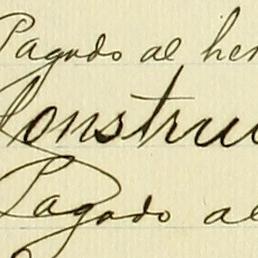 Pagado al her
Constru
Pagado al